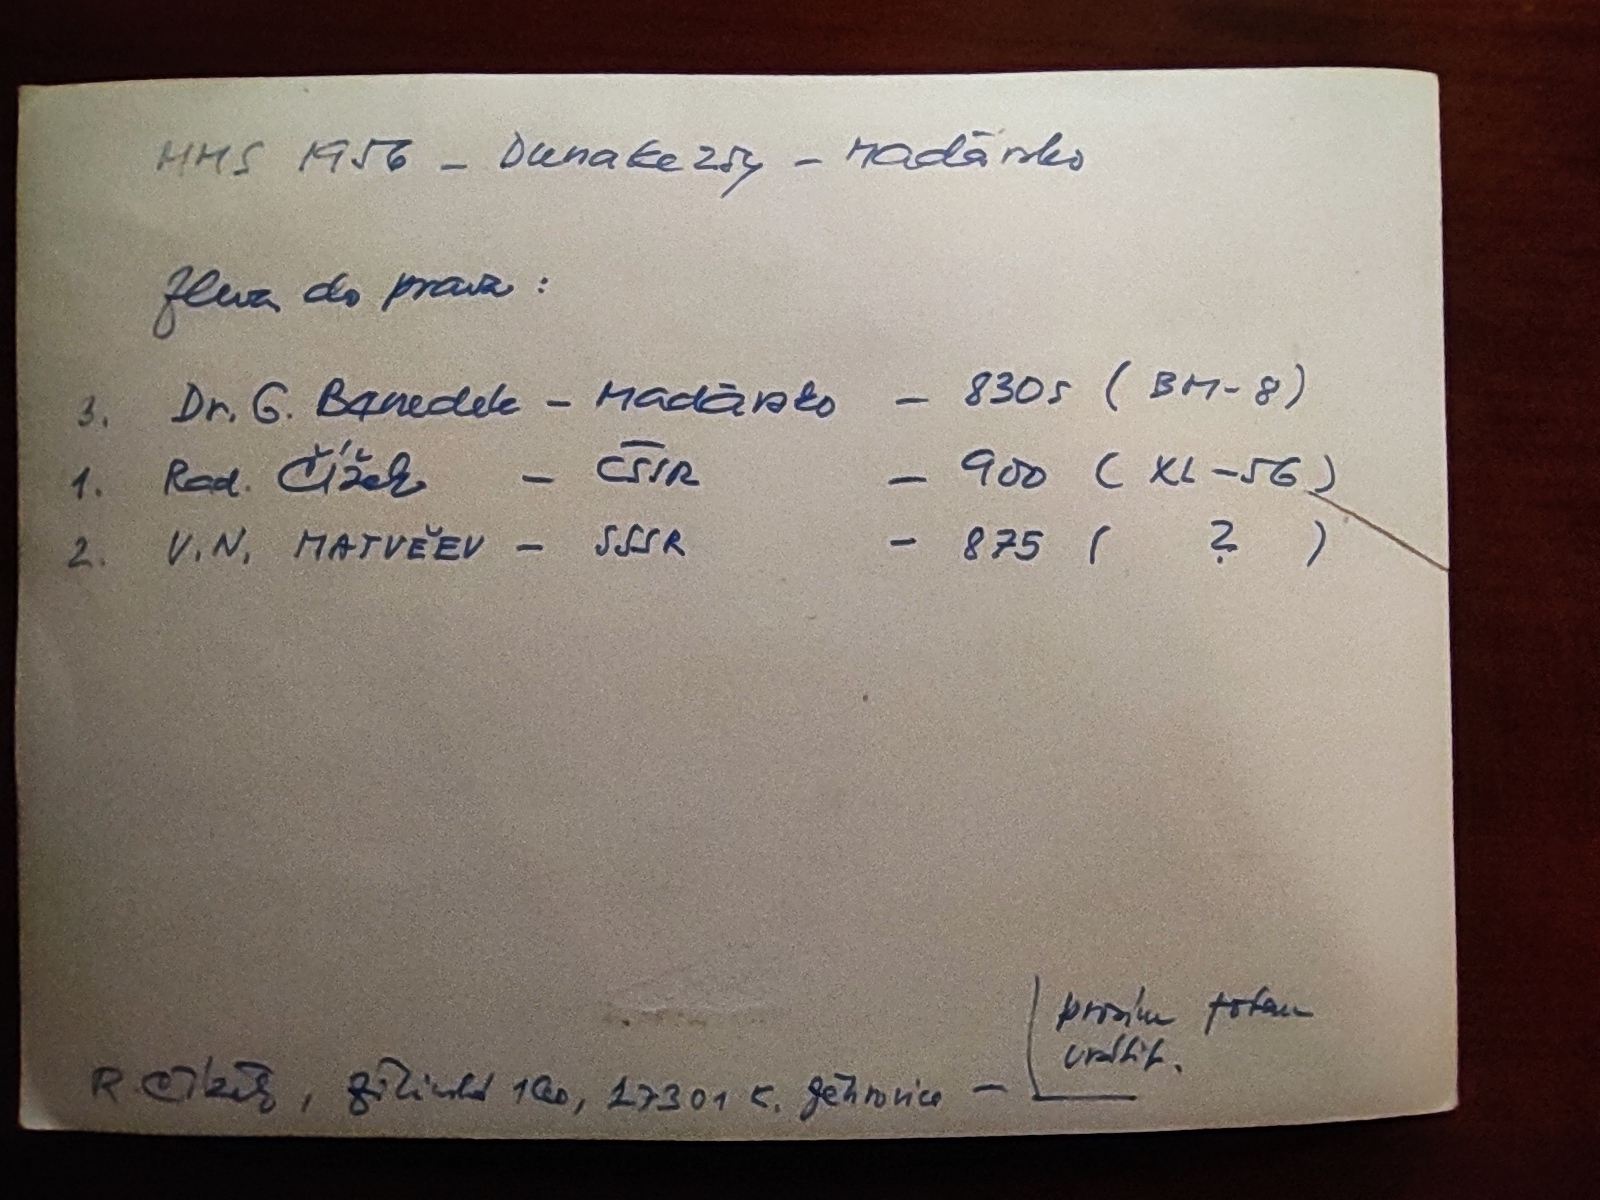 MMS 1956 - Dunakezsy - Maďarsko
Zleva do prava :
3. Dr. G. Benedek - Maďarsko - 830s ( BM-8 )
1. Rad. Čížek - ČSSR - 900 ( XL-56 )
2. V.N. MATVĚEV - SSSR - 875 ( ? )
prosím
vrátit.
R. Čížek, 27301 K. Žehrovice -